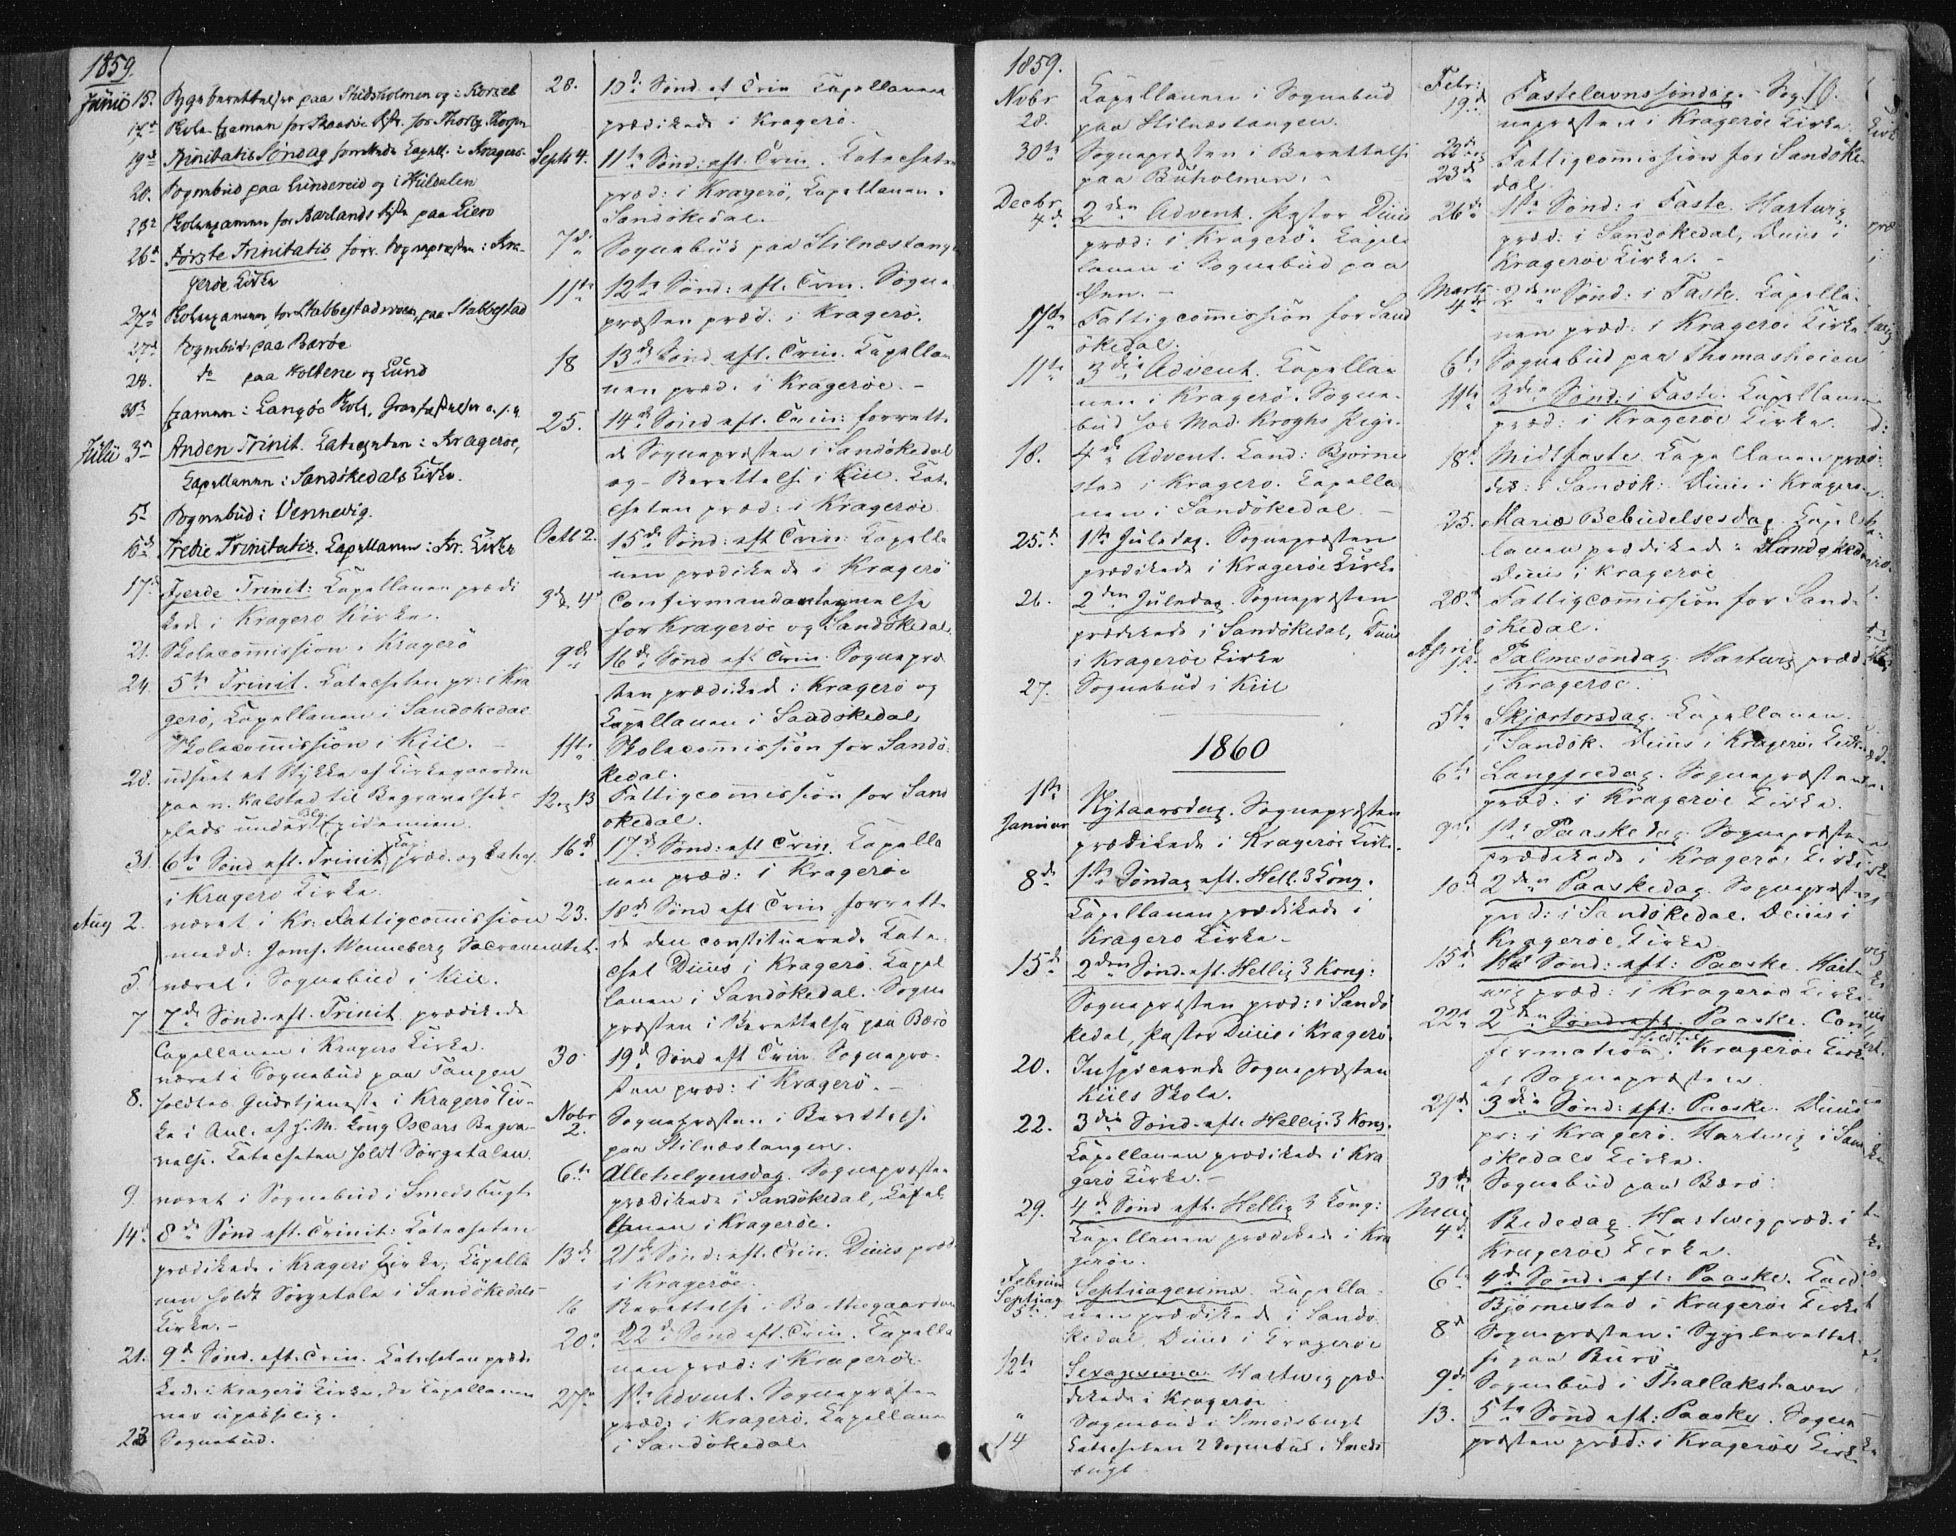 1859.
Junii 15. Sygeberettelser paa Skidsholmen og i
17d Skole Examen for Skaadøe
19d Trinitatis Søndag forrettede Capell. i Kragerø
20. Sognebud paa Gundereid og i Huldalen
Skolexamen for Barlands paa Liero
26d Første Trinitatis forr. Sognepræsten i Kra-
gerøe Kirke
27d Skolexamen for Stabbestad paa Stabbestad
27d Sognebud paa Barøe
28. do paa Holtene og Lund
30d Examen i Langøe Skole,
Julii 3d Anden Trinit. Catecheten i Kragerøe,
Capellanen i Sandøkedals Kirke.
5d Sognebud i Vennevig.
10d Tredie Trinitatis. Capellanen i Kr. Kirke
17d Fjerde Trinit: Capellanen prædi
kede i Kragerø Kirke.
21. Skolecommission i Kragerø
24. 5te Trinit. Catecheten pr: i Kra
gerø, Capellanen i Sandøkedal
Skolecommission i Kiil. –
28. udseet et Stykke af Kirkegaarden
paa n. Kalstad til Begravelses-
plads under Epidemien.
31. 6te Sønd. eft. Trinit. Cap: præd. og Catec.
i Kragerø Kirke.
Aug 2. været i Kr: Fattigcommission
medd: Jomf. Wenneberg Sacramentet.
5. været i Sognebud i Kiil.
7 7de Sønd. eft. Trinit. prædikede
Capellanen i Kragerø Kirke.
været i Sognebud paa Tangen
8. holdtes Gudstjeneste i Kragerø Kir-
ke i Anl. af H. M. Kong Oscars Begra-
velse. Catecheten holdt Sørgetalen.
9 været i Sognebud i Smedsbugt
14d 8de Sønd eft. Trinit: Catecheten
prædikede i Kragerø Kirke, Capella
nen holdt Sørgetale i Sandøkedals
Kirke. –
21. 9d Sønd. eft. Trin. Catecheten prædi
kede i Kragerø Kirke, da Capellanen
var upasselig.
23 Sognebud.
28. 10d Sønd. ef. Trin Capellanen
prædikede i Kragerø.
Septb 4. 11te Sønd: eft. Trin. Catecheten
præd: i Kragerø, Capellanen i
Sandøkedal.
7d Sognebud paa Stilnæstangen
11te 12te Sønd: eft. Trin. Sogne-
præsten præd. i Kragerø.
18 13d Sønd. eft. Trin. Capella
nen præd. i Kragerøe. –
25. 14d Sønd eft. Trin: forrett-
de Sognepræsten i Sandøkedal
og Berettelse i Kiil. Cat.
cheten præd: i Kragerøe
Octb 2. 15de Sønd: eft Trin: Capella
nen prædikede i Kragerø
3d & 4d Confirmandantagnelse
for Kragerøe og Sandøkedal.
9de 16d Sønd eft Trin. Sognepræ
sten prædiked i Kragerø og
Capellanen i Sandøkedal
11te Skolecommission for Sandø-
kedal.
12. og 13 Fattigcommission for Sand
økedal.
16d 17d Sønd: eft Trin. Capella
nen præd: i Kragerøe
23. 18d Sønd eft Trin forrett-
de den constituerede Cate-
chet Duus i Kragerø. Capel
lanen i Sandøkedal. Sogne
præsten i Berettelse paa Bærø
30. 19d Sønd eft Trin. Sognepræ-
sten præd: i Kragerø. –
Novbr 2. Sognepræsten i Berettelse
paa Stilnæstangen.
6te Allehelgensdag. Sognepræsten
prædikede i Sandøkedal, Capel
lanen i Kragerøe.
13d 21de Sønd: eft. Trin. Duus præd
i Kragerøe.
16 Berettelse i Barthegaarden
20d 22d Sønd eft. Trin. Capella
nen præd: i Kragerøe
27d 1ste Advent. Sognepræsten
præd: i Kragerø, Capellanen
i Sandøkedal
1859.
Novbr 28. Capellanen i Sognebud
paa Stilnæstangen.
30te Sognepræsten i Berettelse
paa Buholmen. –
Decbr 4d 2den Advent. Pastor Duus
præd: i Kragerø. Capel-
lanen i Sognebud paa
Øen. –
Fattigcommission for Sand
økedal.
11te 3die Advent. Capella-
nen i Kragerø. Sogne-
bud hos Mad. Kroghs Pige.
18. 4de Advent. Cand: Bjørne
stad i Kragerø. Capella
nen i Sandøkedal –
25d 1ste Juledag. Sognepræsten
prædikede i Kragerøe Kirke
26. 2den Juledag. Sognepræsten
prædikede i Sandøkedal, Duus
i Kragerøe Kirke
27. Sognebud i Kiil
1860
1ste Januar Nytaarsdag. Sognepræsten
prædikede i Kragerøe Kirke.
8de 1ste Søndag eft. Hell. 3 Kong.
Capellanen prædikede i
Kragerø Kirke –
15de 2den Sønd. eft. Hellig 3 Kong:
Sognepræsten præd: i Sandø
kedal, Pastor Duus i Kragerø.
20. Inspicerede Sognepræsten
Kiils Skole.
22. 3die Sønd. eft. Hellig. 3 Kong.
Capellanen prædikede i Kra
gerø Kirke. –
29. 4d Sønd eft. Hellig 3 Kong:
Capellanen prædikede i Kra
gerøe.
Februar Septuag 5te Septuagesima. Capella-
nen prædikede i Sandø
kedal. Duus i Kragerøe
12te Sexagesima. Hartwig præ-
dikede i Kragerøe
" Sognebud i Smedsbugt
14 Catecheten 2 Sognebud i Smeds
bugt
Febr: 19d Fastelavnssøndag. Sog
nepræsten i Kragerøe Kirke
22de og 23de Fattigcommission for Sandøke-
dal
26de 1ste Sønd: i Faste. Hartwig
præd: i Sandøkedal, Duus i
Kragerøe Kirke. –
Marts 4de 2den Sønd: i Faste. Capella-
nen præd: i Kragerøe Kirke
6te Sognebud paa Thomasheien
11te 3die Sønd: i Faste. Capellanen
præd: i Kragerøe Kirke.
18d Midtfaste. Capellanen præ-
diked: i Sandøk: Duus i Kragerøe
25. Mariæ Bebudelsesdag. Capel-
lanen prædikede i Sandøkedal
Duus i Kragerøe
28d Fattigcommission for Sand-
økedal.
April 1ste Palmesøndag. Hartwig præd.
i Kragerøe.
5te Skjærtorsdag. Capellanen.
i Sandøk. Duus i Kragerøe Kirke
6te Langfredag. Sognepræsten
præd: i Kragerøe Kirke.
1ste Paaskedag. Sognepræsten
prædikede i Kragerøe Kirke
2den Paaskedag. Sognepræsten
præd: i Sandøkedal. Duus i
Kragerøe Kirke
15d 1ste Sønd: eft: Paaske. Hart-
wig præd: i Kragerøe Kirke.
22d 2den Sønd. eft. Paaske. Con
firmation holdtes i Kragerøe Kirke
af Sognepræsten
29d 3die Sønd: eft: Paaske. Duus
pr: i Kragerø. Hartwig i Sand
økedals Kirke.
30d Sognebud paa Bærø.
Mai 4d Bededag. Hartwig præd. i
Kragerøe Kirke.
6te 4d Sønd. eft: Paaske. Cand
Bjørnestad i Kragerøe Kirke
8d Sognepræsten i Sygeberettel-
se paa Burø
9de Sognebud i Thallakshavn
13. 5te Sønd eft: Paaske. Sogne
præsten præd: i Kragerøe Kirke